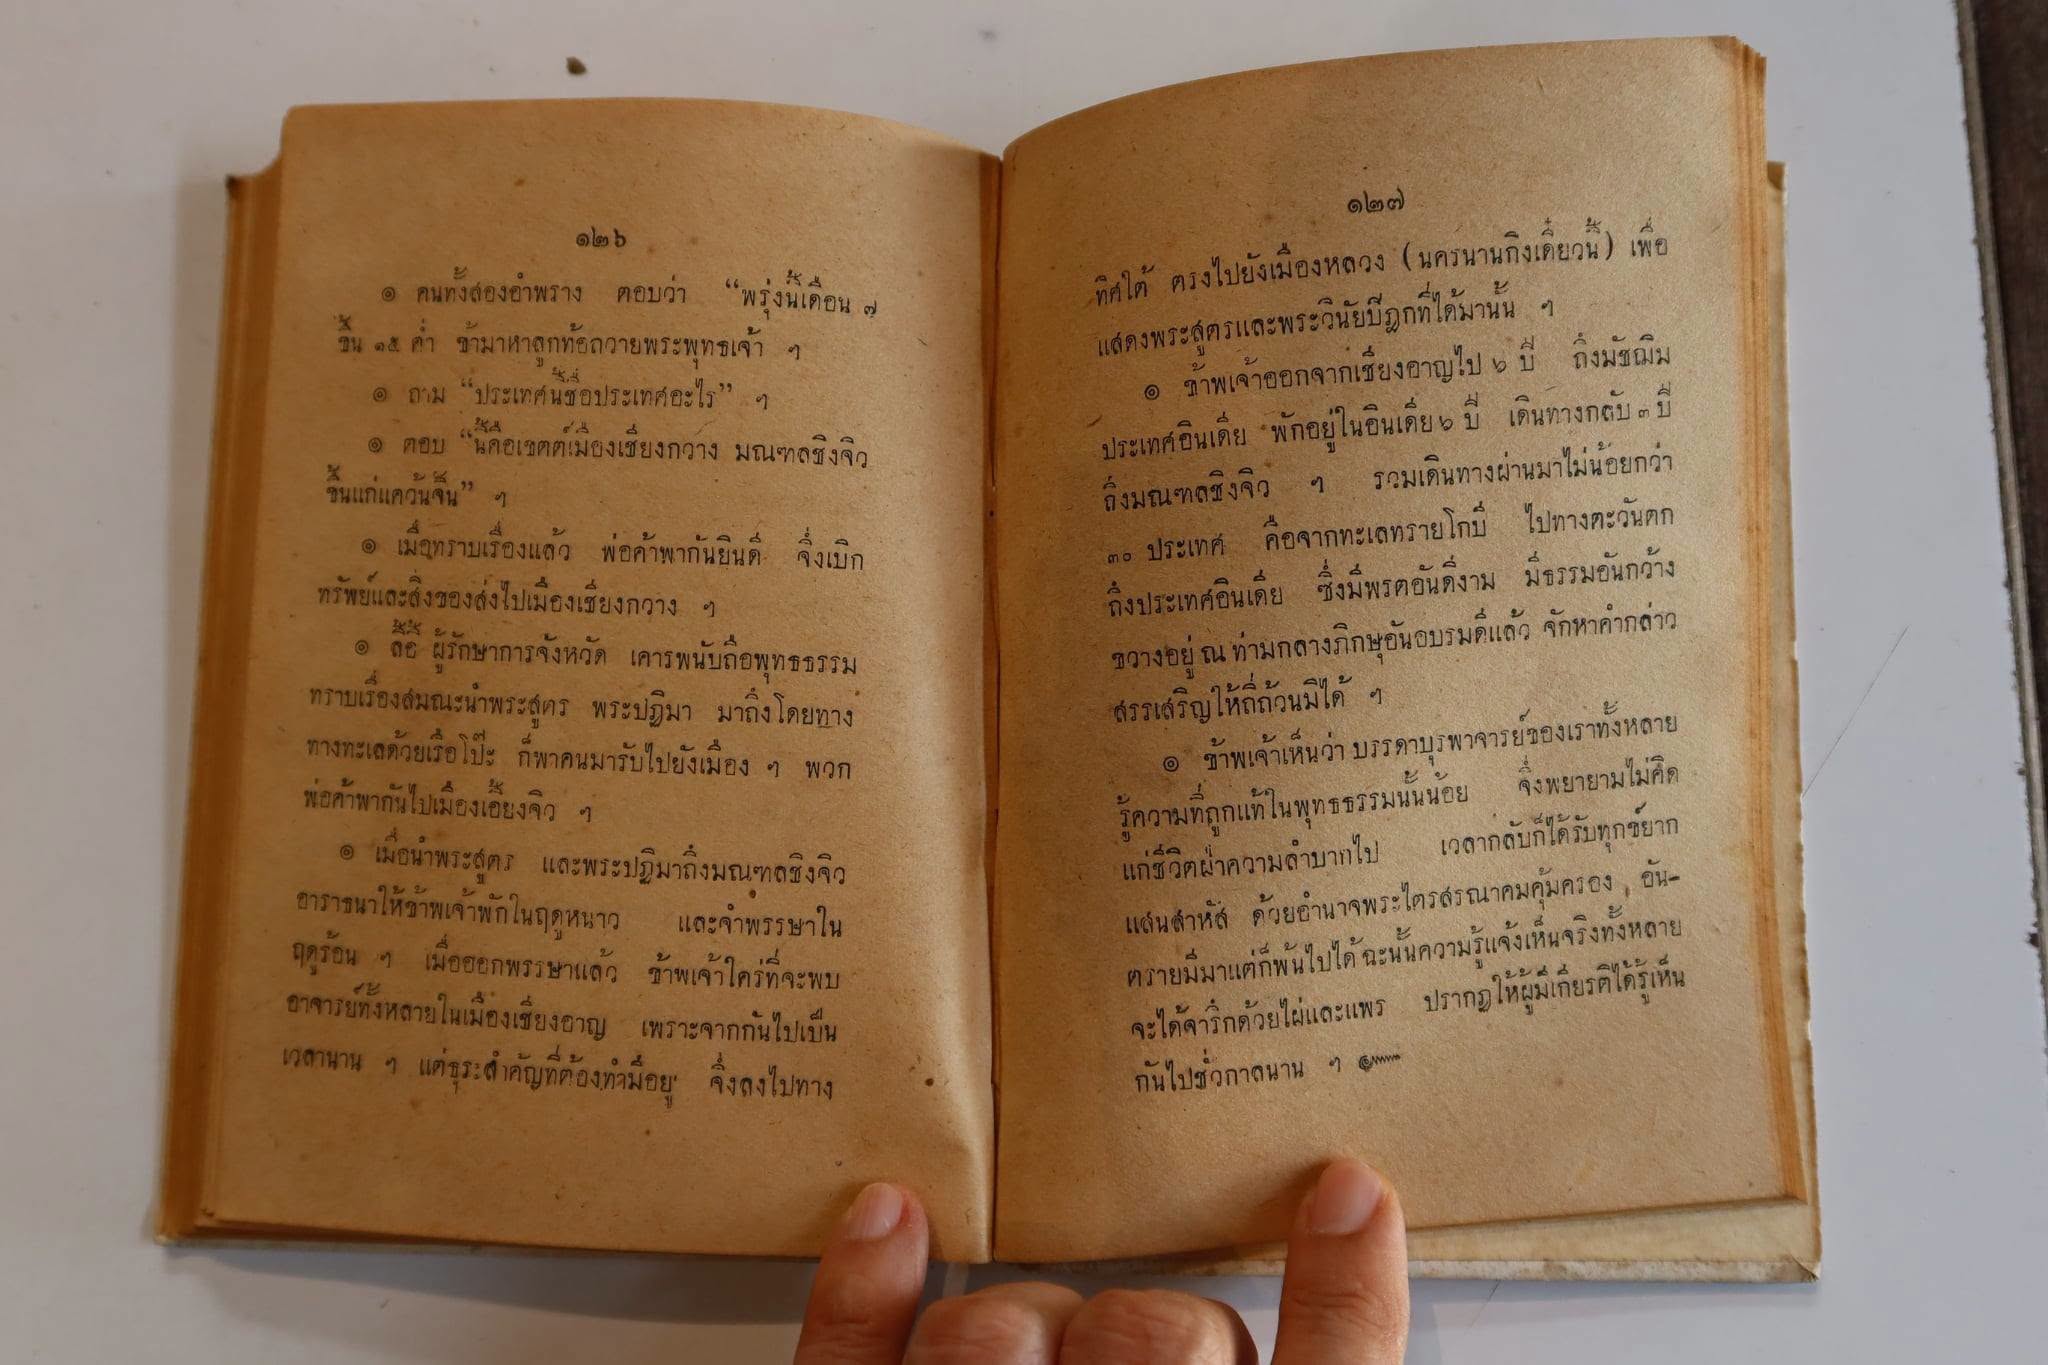 ๑๒๖
๏ คนทั้งสองอำพราง ตอบว่า “พรุ่งนี้เดือน ๗
ขึ้น ๑๕ ค่ำ ข้ามาหาลูกท้อถวายพระพุทธเจ้า ฯ
๏ ถาม “ประเทศนี้ชื่อประเทศอะไร” ฯ
๏ ตอบ “นี้คือเขตต์เมืองเชียงกวาง มณฑลชิงจิว
ขึ้นแก่แคว้นจิ้น” ฯ
๏ เมื่อทราบเรื่องแล้ว พ่อค้าพากันยินดี จึ่งเบิก
ทรัพย์และสิ่งของส่งไปเมืองเชียงกวาง ฯ
๏ ลีอี้ ผู้รักษาการจังหวัด เคารพนับถือพุทธธรรม
ทราบเรื่องสมณะนำพระสูตร พระปฏิมา มาถึงโดยทาง
ทางทะเลด้วยเรือโป๊ะ ก็พาคนมารับไปยังเมือง ฯ พวก
พ่อค้าพากันไปเมืองเอี้ยงจิว ฯ
๏ เมื่อนำพระสูตร และพระปฏิมาถึงมณฑลชิงจิว
อาราธนาให้ข้าพเจ้าพักในฤดูหนาว และจำพรรษาใน
ฤดูร้อน ฯ เมื่อออกพรรษาแล้ว ข้าพเจ้าใคร่ที่จะพบ
อาจารย์ทั้งหลายในเมืองเชียงอาญ เพราะจากกันไปเป็น
เวลานาน ฯ แต่ธุระสำคัญที่ต้องทำมีอยู่ จึ่งลงไปทาง
๑๒๗
ทิศใต้ ตรงไปยังเมืองหลวง (นครนานกิงเดี๋ยวนี้) เพื่อ
แสดงพระสูตรและพระวินัยปีฎกที่ได้มานั้น ฯ
๏ ข้าพเจ้าออกจากเชียงอาญไป ๖ ปี ถึงมัชฌิม
ประเทศอินเดีย พักอยู่ในอินเดีย ๖ ปี เดินทางกลับ ๓ ปี
ถึงมณฑลชิงจิว ฯ รวมเดินทางผ่านมาไม่น้อยกว่า
๓๐ ประเทศ คือจากทะเลทรายโกบี ไปทางตะวันตก
ถึงประเทศอินเดีย ซึ่งมีพรตอันดีงาม มีธรรมอันกว้าง
ขวางอยู่ ณ ท่ามกลางภิกษุอันอบรมดีแล้ว จักหาคำกล่าว
สรรเสริญให้ถี่ถ้วนมิได้ ฯ
๏ ข้าพเจ้าเห็นว่า บรรดาบุรพาจารย์ของเราทั้งหลาย
รู้ความที่ถูกแท้ในพุทธธรรมนั้นน้อย จึ่งพยายามไม่คิด
แก่ชีวิตฝ่าความลำบากไป เวลากลับก็ได้รับทุกข์ยาก
แสนสาหัส ด้วยอำนาจพระไตรสรณาคมคุ้มครอง อัน-
ตรายมีมาแต่ก็พ้นไปได้ ฉะนั้นความรู้แจ้งเห็นจริงทั้งหลาย
จะได้จาริกด้วยไผ่และแพร ปรากฏให้ผู้มีเกียรติได้รู้เห็น
กันไปชั่วกาลนาน ฯ ๛